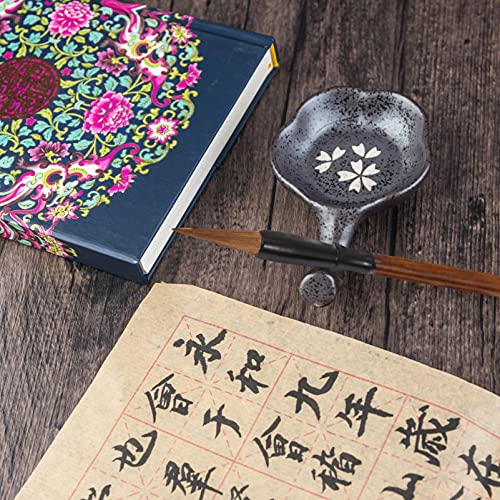 永和九年歲在
會于會稽山
也群